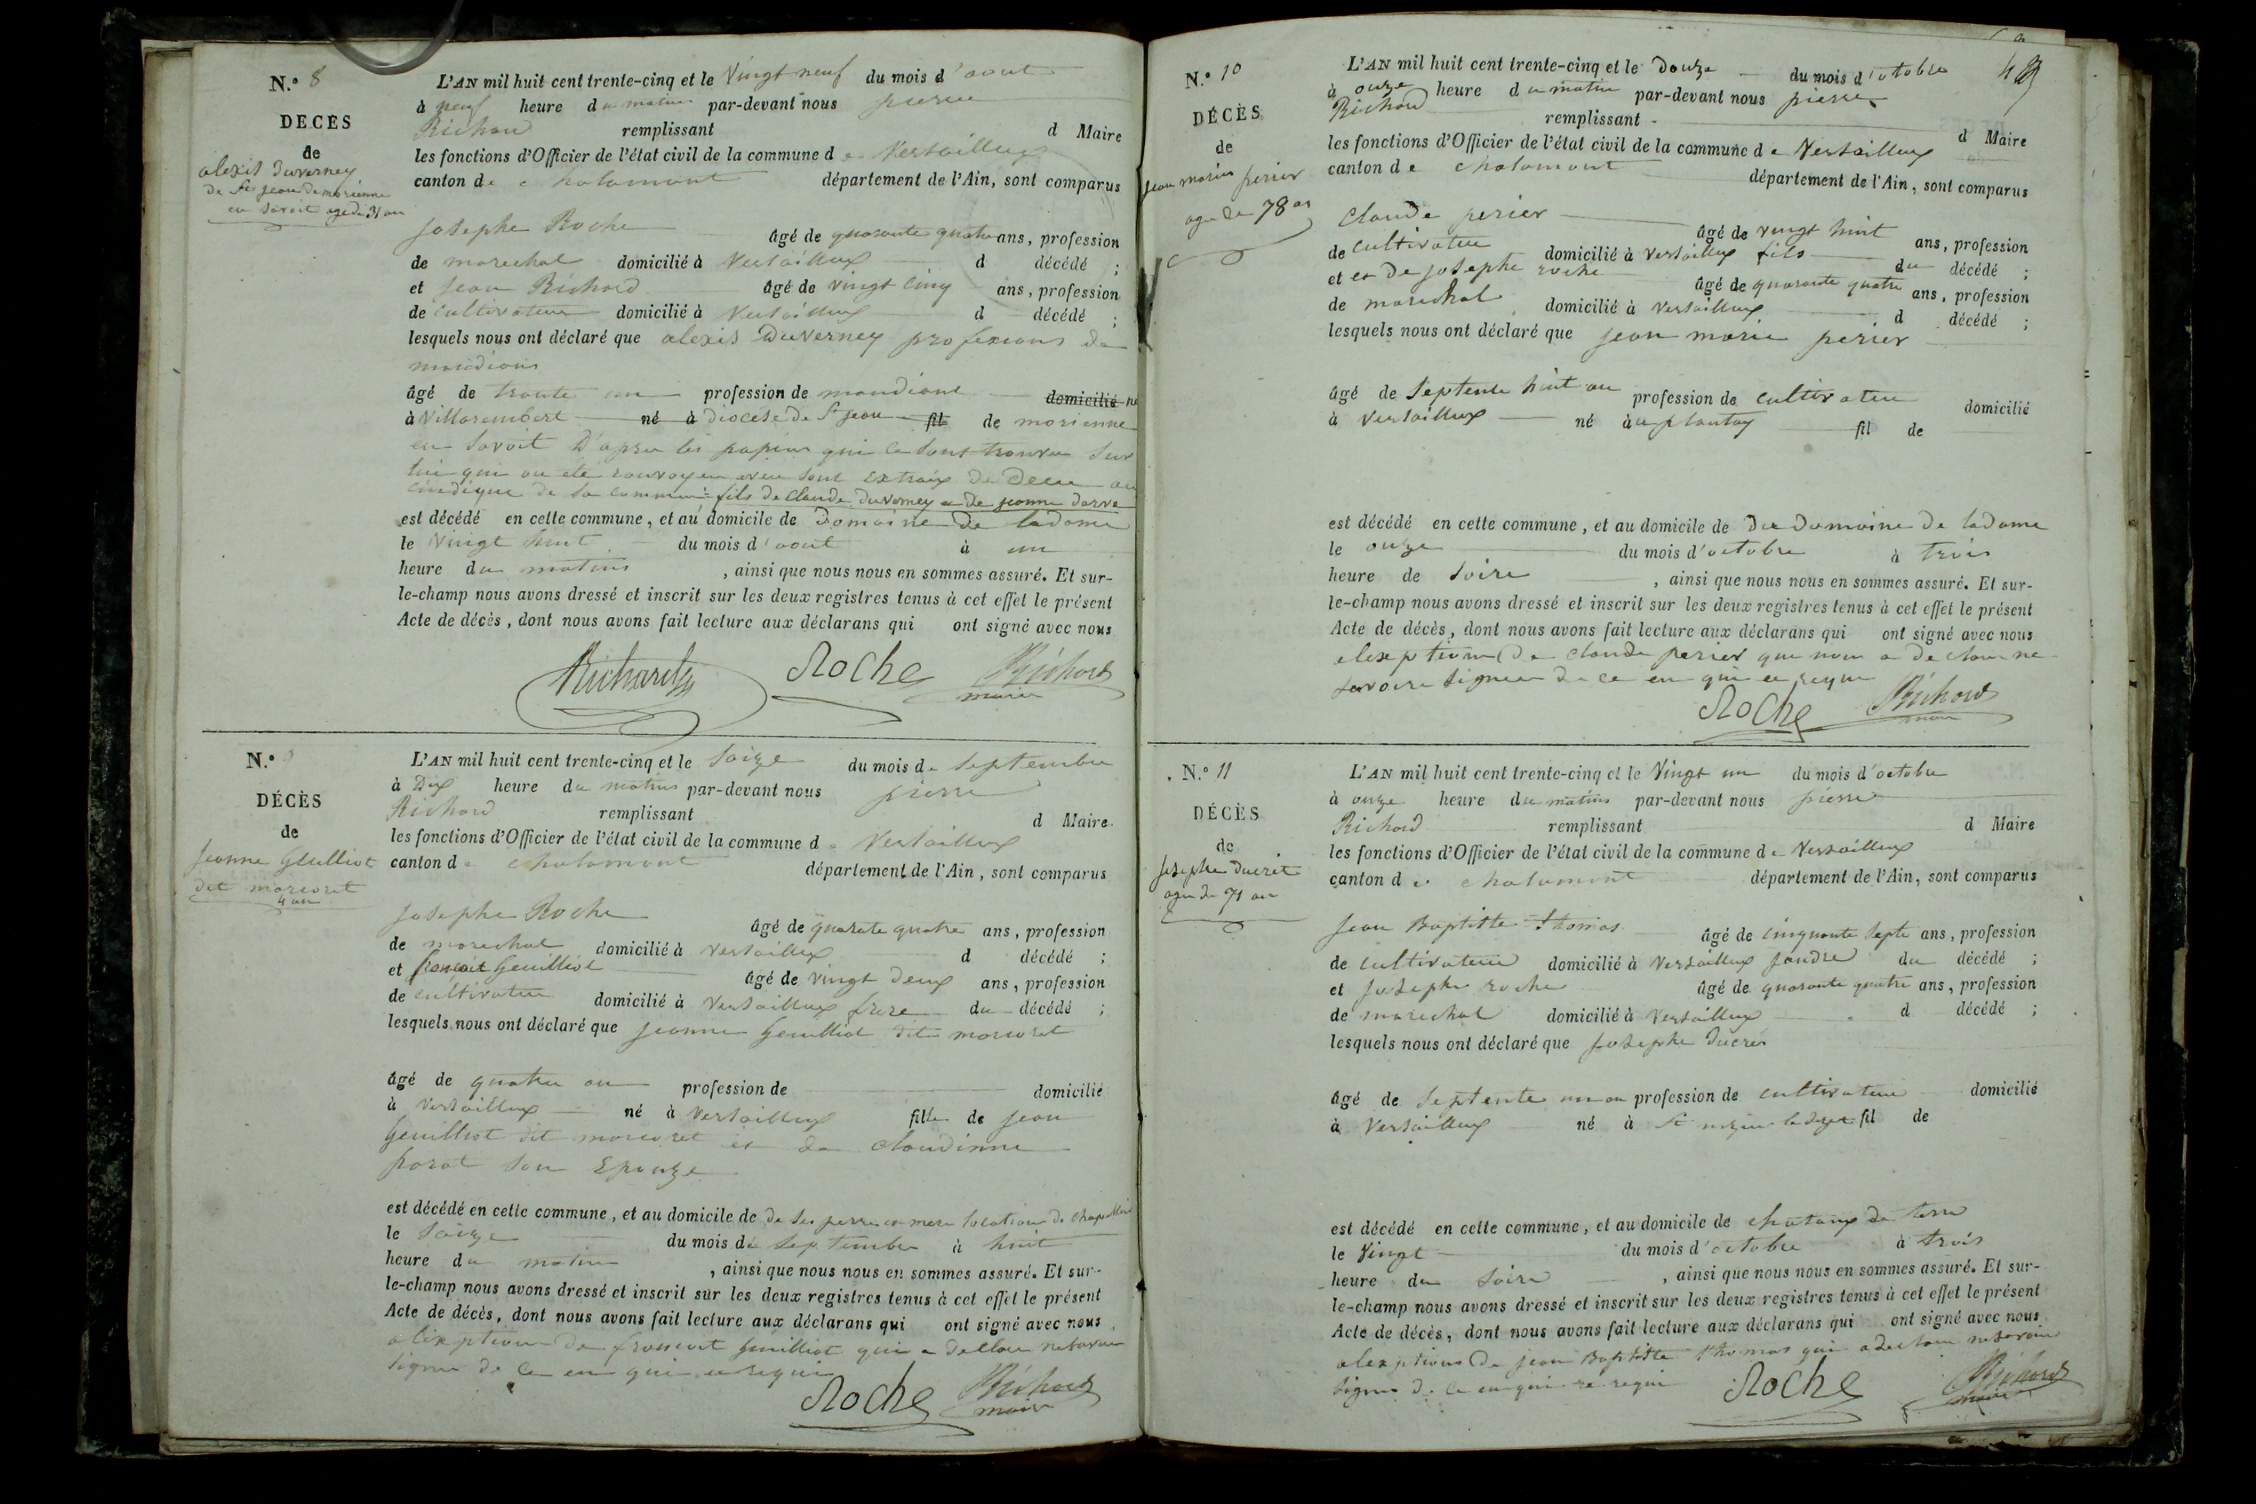 N.º 8
DÉCÈS
de
alexis Duverney
de St jean de morienne
en Savoit age de 31 an
L'AN mil huit cent trente-cinq et le Vingt neuf du mois d'aout
à neuf heure du matin par-devant nous pierre
Richard remplissant d Maire
les fonctions d'Officier de l'état civil de la commune de Versailleux
canton de chalamont département de l'Ain, sont comparus
Josephe Roche âgé de quarante quatre ans, profession
de marechal domicilié à Versailleux d décédé ;
et Jean Richard âgé de vingt cinq ans, profession
de cultivateur domicilié à Versailleux d décédé ;
lesquels nous ont déclaré que alexis Duverney profesions de
mandians
âgé de trante un profession de mandiant domicilié né
à Villarembert né à diocese de St jean fil de morienne
en Savoit D'apres les papier qui ce sont trouvée Sur
lui qui on été
de la commune fils de Claude Duverney et de jeanne darve
est décédé en cette commune, et au domicile de Domaine de ladame
le Vingt huit du mois d'aout à un
heure du matins , ainsi que nous nous en sommes assuré. Et sur-
le-champ nous avons dressé et inscrit sur les deux registres tenus à cet effet le présent
Acte de décès, dont nous avons fait lecture aux déclarans qui ont signé avec nous
Richard Roche Richard
maire
N.º
DÉCÈS
de
Jeanne Genilliot
dit morcoret
4 an
L'AN mil huit cent trente-cinq et le Saize du mois de Septembre
à Dix heure du matins par-devant nous pierre
Richard remplissant d Maire
les fonctions d'Officier de l'état civil de la commune de Versailleux
canton de chalamont département de l'Ain, sont comparus
Josephe Roche âgé de quarate quatre ans, profession
de marechal domicilié à Versailleux d décédé ;
et fransoit Genilliot âgé de vingt deux ans, profession
de cultivateur domicilié à Versailleux frere du décédé ;
lesquels nous ont déclaré que jeanne Genilliot dit morcoret
âgé de quatre an profession de domicilié
à Versailleux né à Versailleux fille de jean
Genilliot dit morcoret et de claudinne
parat Son Epouze
est décédé en cette commune, et au domicile de de Ses perre et mere location de
le Saize du mois de Septembre à huit
heure du matin , ainsi que nous nous en sommes assuré. Et sur-
le-champ nous avons dressé et inscrit sur les deux registres tenus à cet effet le présent
Acte de décès, dont nous avons fait lecture aux déclarans qui ont signé avec nous
alexption de fransoit Genilliot qui a
Signer de ce en qui
Roche Richard
maire
N.º 10
DÉCÈS
de
jean marie perier
age de 78 an
L'AN mil huit cent trente-cinq et le Douze du mois d'octobre
à onze heure du matin par-devant nous pierre
Richard remplissant d Maire
les fonctions d'Officier de l'état civil de la commune de Versailleux
canton de chalamont département de l'Ain, sont comparus
Claude perier âgé de vingt huit ans, profession
de cultivateur domicilié à Versailleux fils du décédé ;
et et De josephe roche âgé de quarante quatre ans, profession
de marechal domicilié à Versailleux d décédé ;
lesquels nous ont déclaré que jean marie perier
âgé de Septente huit an profession de cultivateur domicilié
à Versailleux né à u plantay fil de
est décédé en cette commune, et au domicile de Du Domaine de ladame
le onze du mois d'octobre à trois
heure de Soire , ainsi que nous nous en sommes assuré. Et sur-
le-champ nous avons dressé et inscrit sur les deux registres tenus à cet effet le présent
Acte de décès, dont nous avons fait lecture aux déclarans qui ont signé avec nous
alexption de claude perier que nous a declare ne
Savoire Signer de ce en qui
Roche Richard
maire
N.º 11
DÉCÈS
de
Josephe Ducret
age de 71 an
L'AN mil huit cent trente-cinq et le Vingt un du mois d'octobre
à onze heure du matins par-devant nous pierre
Richard remplissant d Maire
les fonctions d'Officier de l'état civil de la commune de Versailleux
canton de chalamont département de l'Ain, sont comparus
Jean Baptiste Thomas âgé de cinquante Septe ans, profession
de cultivateur domicilié à Versailleux jandre du décédé ;
et Josephe roche âgé de quarante quatre ans, profession
de marechal domicilié à Versailleux d décédé ;
lesquels nous ont déclaré que Josephe Ducret
âgé de Septente un an profession de cultivateur domicilié
à Versailleux né à St fil de
est décédé en cette commune, et au domicile de chataux de
le Vingt du mois d'octobre à trois
heure du Soire , ainsi que nous nous en sommes assuré. Et sur-
le-champ nous avons dressé et inscrit sur les deux registres tenus à cet effet le présent
Acte de décès, dont nous avons fait lecture aux déclarans qui ont signé avec nous
alexptions de jean Baptiste thomas qui a declare nesavoire
Signer de ce en qui
Roche Richard
maire